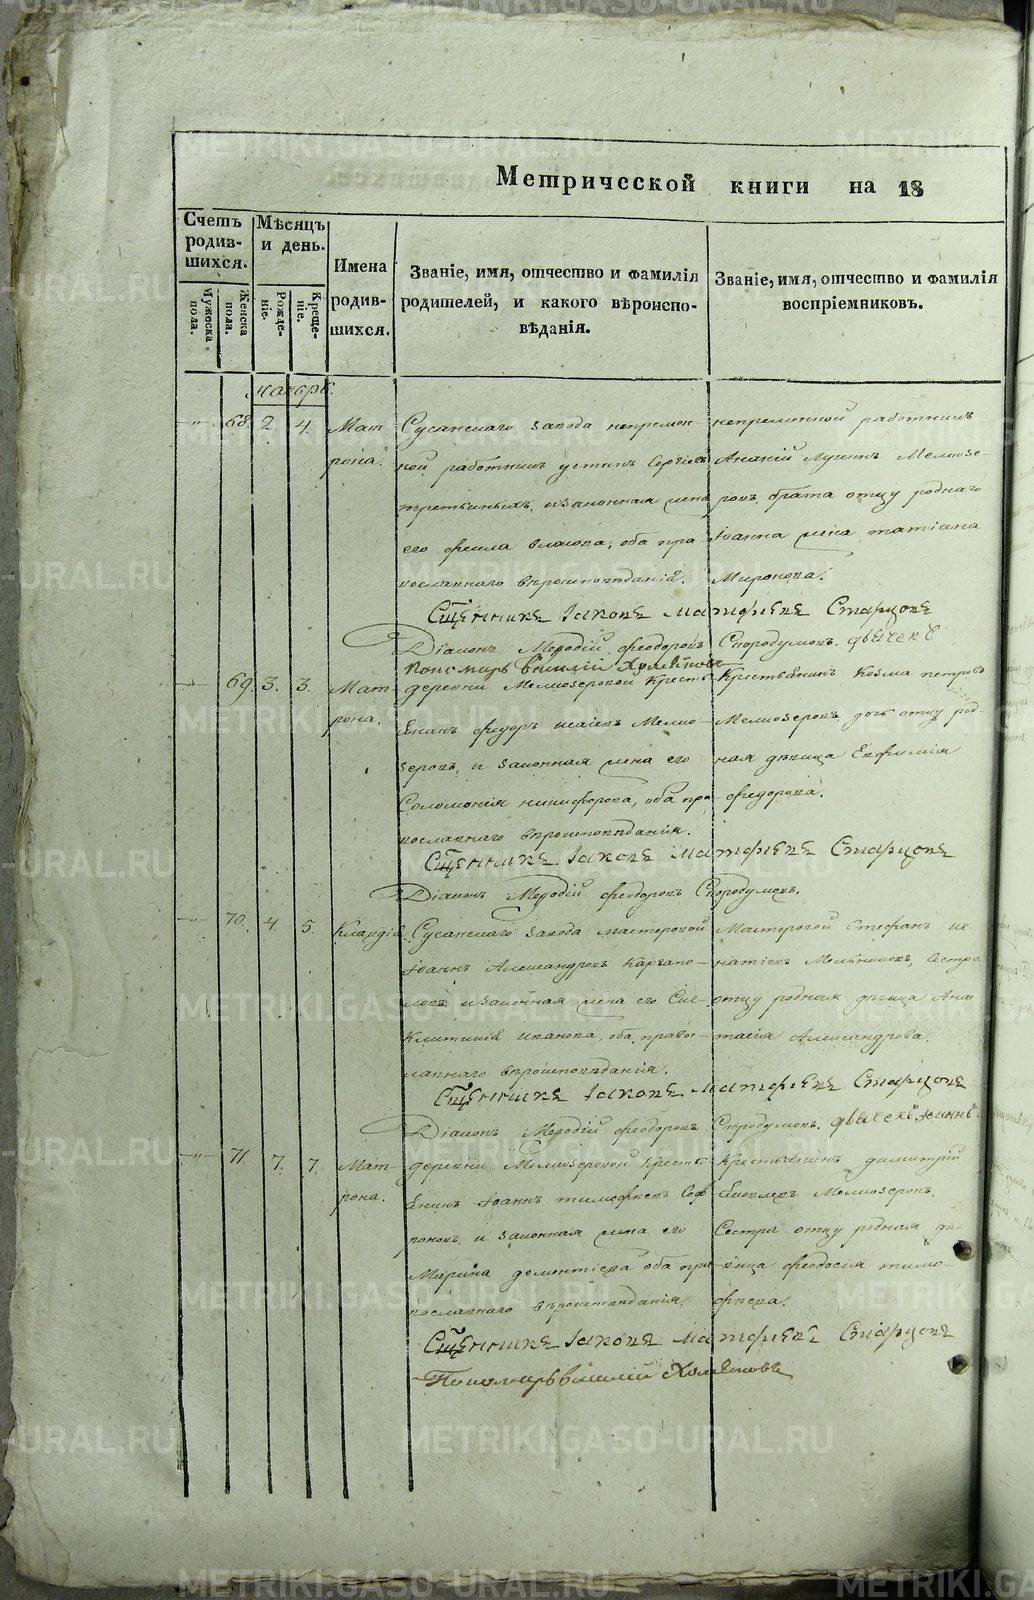 Метрической книги на 18
Счетъ родившихся.
Мужеска пола.
Женска пола.
Мѣсяцъ и день.
Рожденіе.
Крещеніе.
Имена родившихся.
Званіе, имя, отчество и фамилія родителей, и какого вѣроисповѣданія.
Званіе, имя, отчество и фамилія воспріемниковъ.
68. 2. 4. Матрона.
Сусанскаго завода непремѣн-
ной работникъ Устинъ Сергіевъ
и законная жена
его Ѳекла Власова, оба пра-
вославнаго вѣроисповѣданія.
непременной работникъ
Ананій Мелкозе-
ровъ, брата отцу роднаго
Іоанна жена Татіана
Миронова.
Сщенникъ Іаковъ Матфѣевъ Старцовъ
Діаконъ Меѳодій Ѳеодоровъ Скородумовъ.
Пономарь Василий Холмяковъ
69. 3. 3. Матрона.
деревни Мелкозеровой кресть-
янинъ Ѳедоръ Исаіевъ Мелко-
зеровъ, и законная жена его
Соломонія Никифорова, оба пра-
вославнаго вѣроисповѣданія.
Крестьянинъ Козма Петровъ
Мелкозеровъ, дочь отцу род-
ная дѣвица Евфимія
Ѳедорова.
Сщенникъ Іаковъ Матфѣевъ Старцовъ
Діаконъ Меѳодій Ѳеодоровъ Скородумовъ.
70. 4. 5. Клавдіа.
Сусанскаго завода мастеровой
Іоаннъ Александровъ Каргапо-
ловъ и законная жена его Син-
клитикіа Иванова, оба правос-
лавнаго вѣроисповѣданія.
Мастеровой Стефанъ Иг-
натіевъ Мельниковъ, сестра
отцу родная дѣвица Ана-
стасія Александрова.
Сщенникъ Іаковъ Матфѣевъ Старцовъ
Діаконъ Меѳодій Ѳеодоровъ Скородумовъ.
71. 7. 7. Матрона.
деревни Мелкозеровой кресть-
янинъ Іоаннъ Тимофѣевъ Соф-
роновъ, и законная жена его
Марина Дементіева оба пра-
вославнаго вѣроисповѣданія.
Крестьянинъ Димитрій
Мелкозеровъ.
Сестра отцу родная дѣ-
вица Ѳеодосія Тимо-
фѣева.
Сщенникъ Іаковъ Матфѣевъ Старцовъ
Пономарь Василий Холмяковъ
METRIKI.GASO-URAL.RU